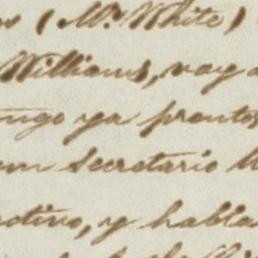 (Mr. White)
Williams, voy a
tengo ya prontos
un secretario
motivo, y habla